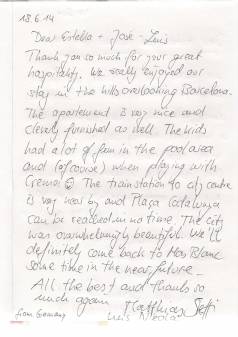 18.6.14
Dear Estella + Jose-Luis
Thank you so much for your great
hospitality. We really enjoyed our
stay in the hills overlooking Barcelona.
The apartement is very nice and
cleverly furnished as well. The kids
had a lot of fun in the pool area
and (of course) when playing with
Cremo ☺ The trainstation to city centre
is very near by and Plaça Catalunya
can be reached in no time. The city
was overwhelmingly beautiful. We'll
definitely come back to Mas Blanc
some time in the near future -
All the best and thanks so
much again Matthias Steffi
from Germany Luis Nicola